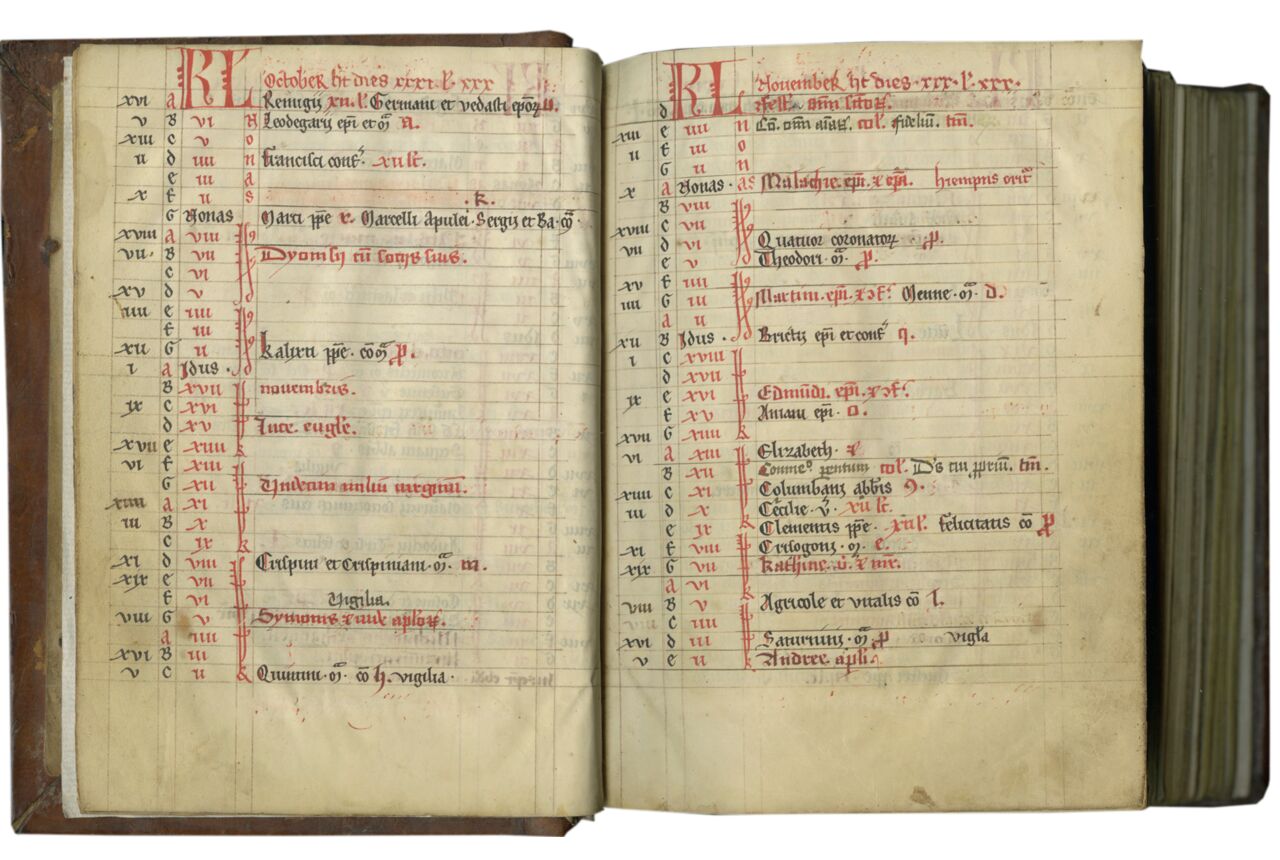 KL October ht dies xxxi. l. xxx
xvi a Remigij xii. l. Germani et vedasti epor
v B vi n Leodegarij epi et
xiii c v o
ii d iiii n Francisci conf. xii lc.
e iii a
x f ii s .k.
G Nonas Marci ppe Marcelli Apulei. Sergij et Ba. co
xviii a viii
vii. B vii Dyonisij cu socijs suis.
c vi
xv d v
iiii e iiii
f iii
xii G ii Kalixti ppe. p.
i a Idus.
B xvii novembris.
ix c xvi
d xv Luce. eugle.
xvii e xiiii k
vi f xiii
G xii Undecim miliu virginu.
xiiii a xi
iii B x
c ix k
xi d viii Crispini et Crispiniani. m.
xix e vii
f vi Vigilia.
viii G v Symonis et iude aplor.
a iiii
xvi B iii
v c ii k Quintini. co h. vigilia.
KL November ht dies. xxx. l. xxx.
d Fest. omi sctor.
xiii e iiii n Co. omi aiar. col. fideliu. tm.
ii f iii o
G ii n
x a Nonas. as Malachie. epi. hiemps orit
B viii
xviii c vii
vii d vi Quatuor coronator p.
e v Theodori. p.
xv f iiii
iiii G iii Martini. epi. Menne. d.
a ii
xii B Idus. Brictij epi et conf q.
i c xviii
d xvii
ix e xvi Edmundi. epi.
f xv Aniani epi. o.
xvii G xiiii k
vi a xiii Elizabeth.
B xii parentum col. Ds cui tm.
xiiii c xi Columbani abbis 9.
iii d x Cecilie. v. xii lc.
e ix k Clementis ppe. xii l. felicitatis co p
xi f viii Crisogoni. e.
xix G vii Katherine. v.
a vi
viii B v Agricole et vitalis co l.
c iiii
xvi d iii Saturnini. p vigla
v e ii k Andree apli